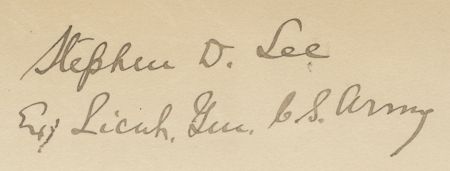 Stephen D. Lee
Ex, Lieut. Gen. C. S. Army